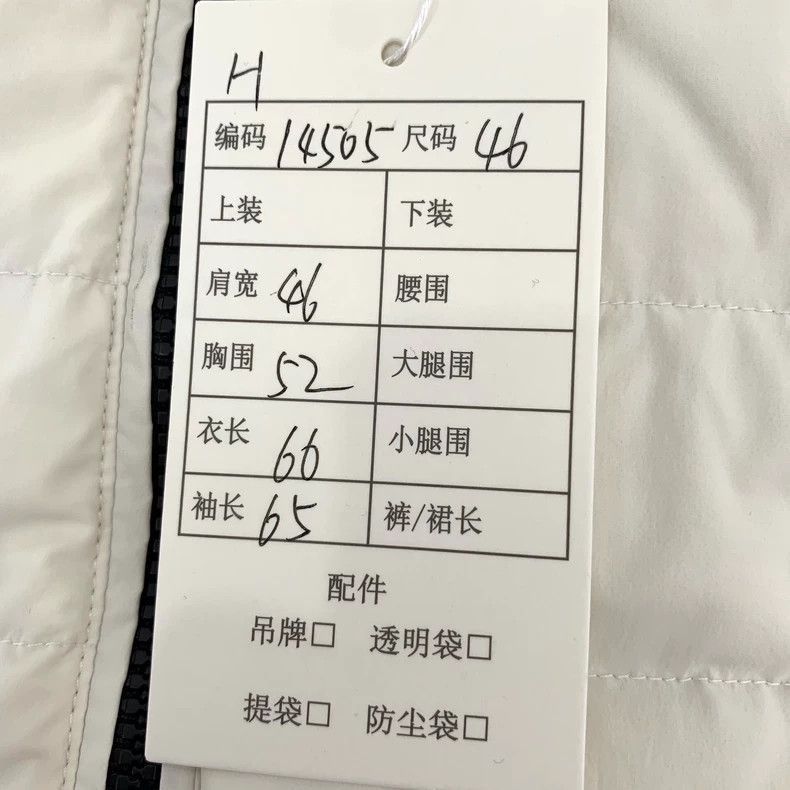 H
编码 14505 尺码 46
上装 下装
肩宽 46 腰围
胸围 52 大腿围
衣长 66 小腿围
袖长 65 裤/裙长
配件
吊牌□ 透明袋□
提袋□ 防尘袋□